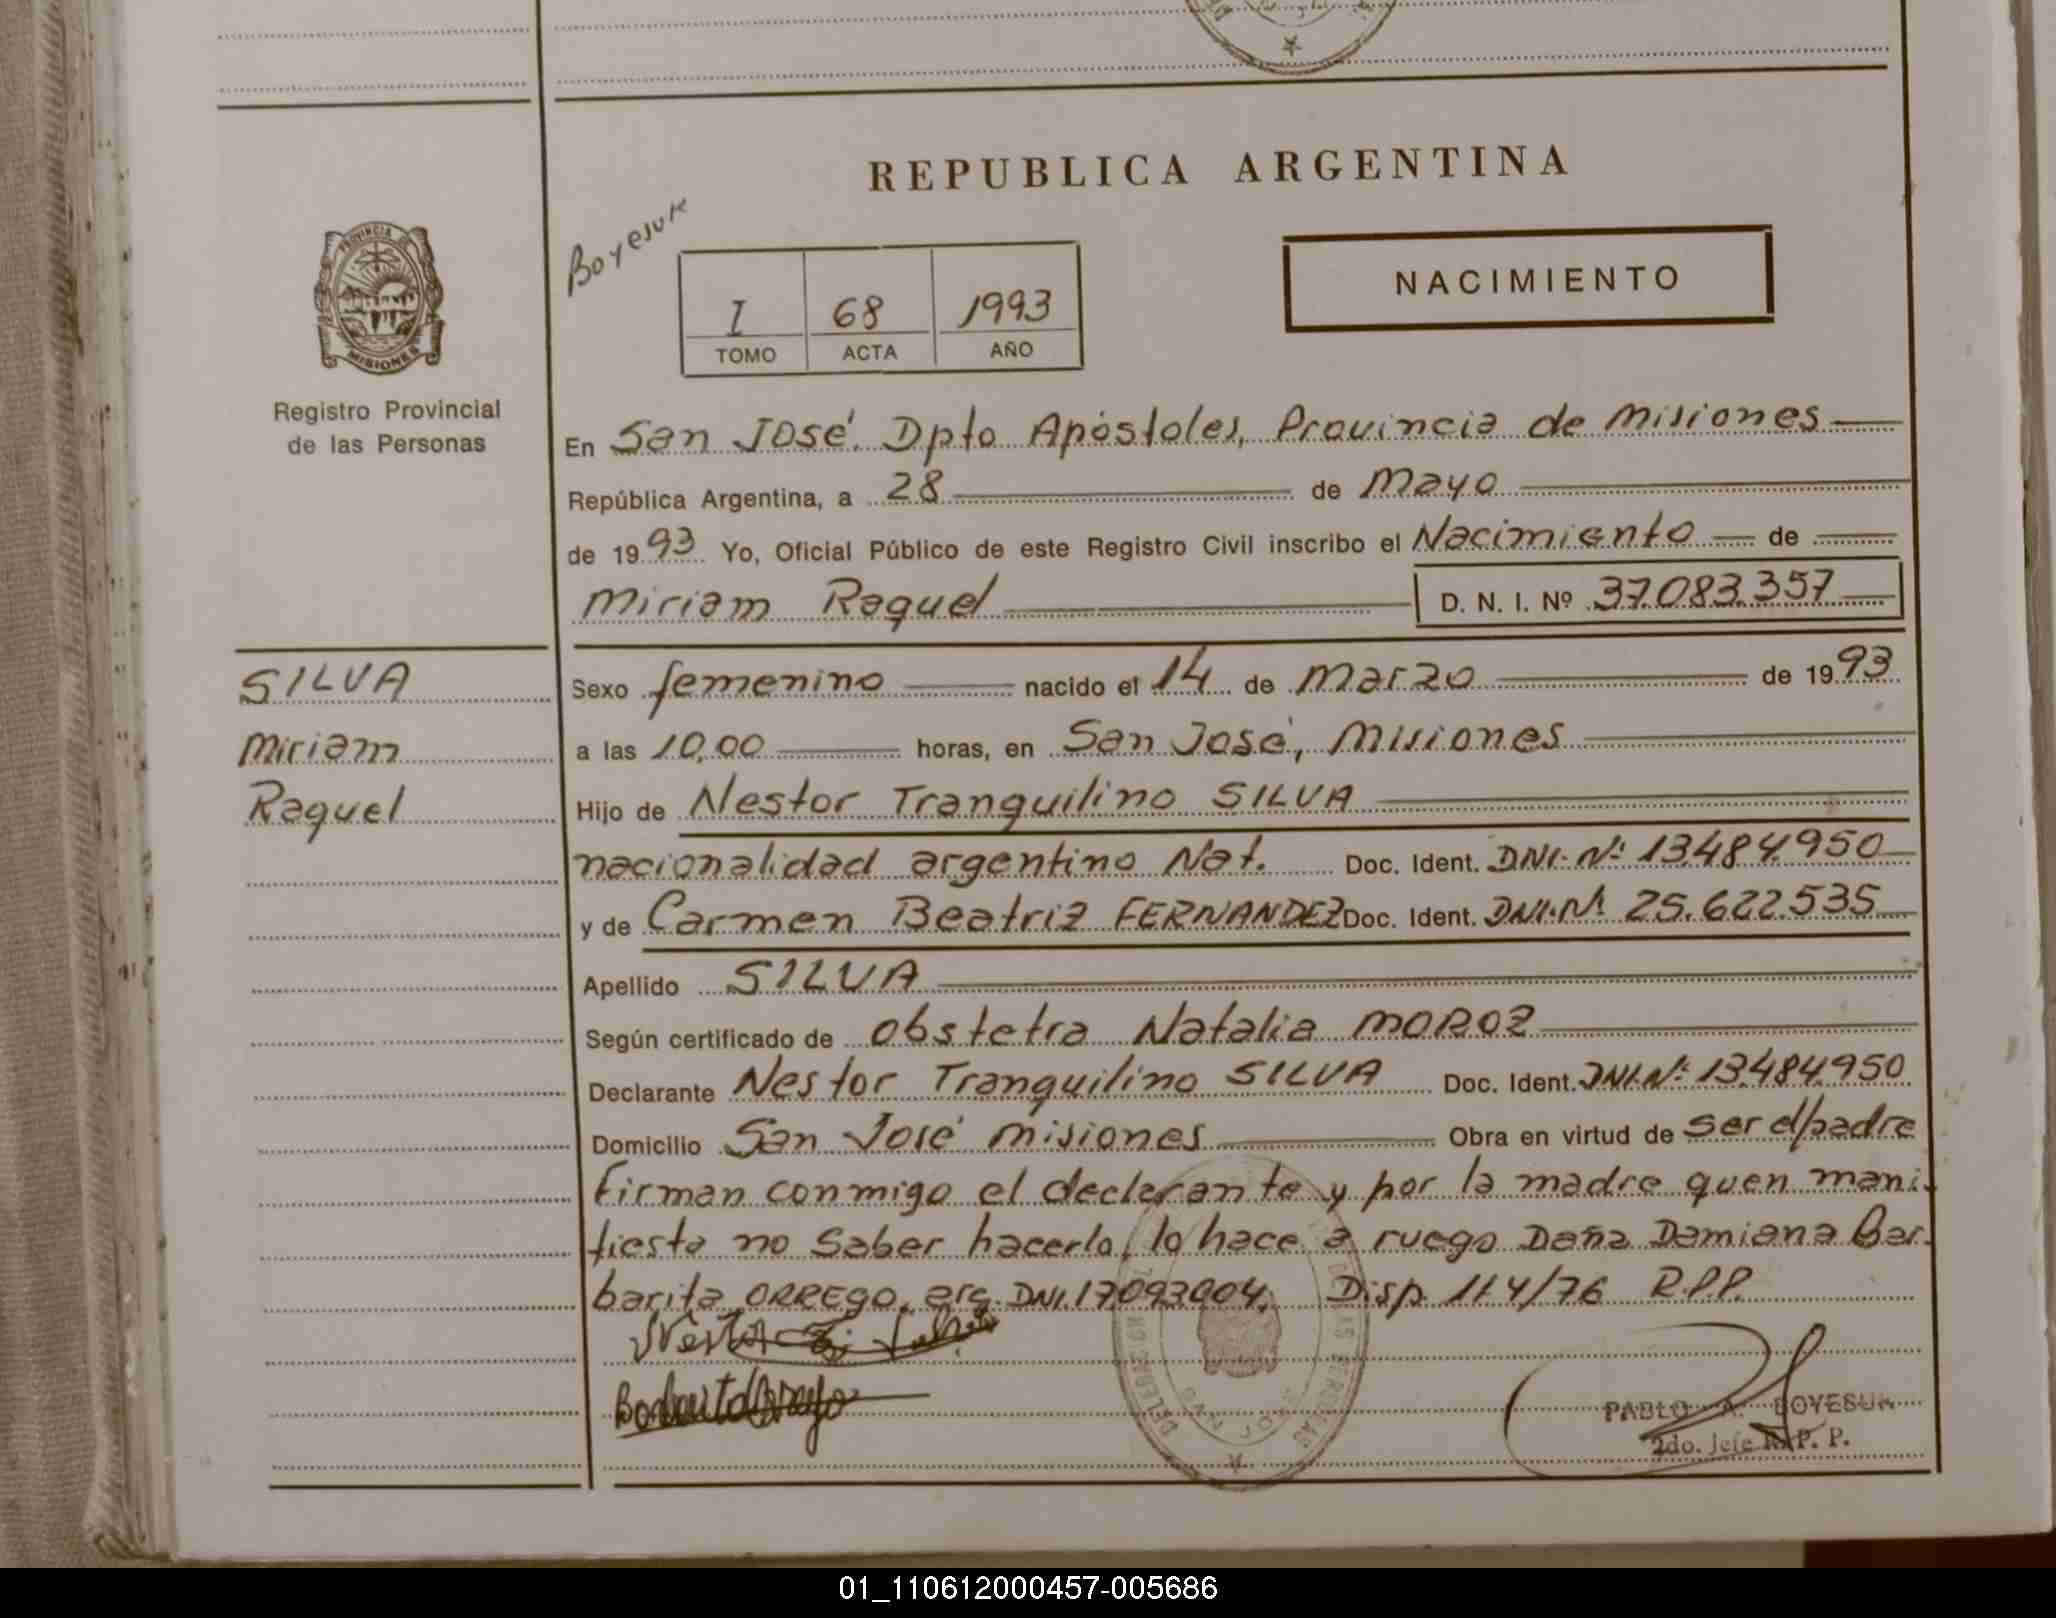 REPUBLICA ARGENTINA
Boyesuk
NACIMIENTO
I 68 1993
TOMO ACTA AÑO
PROVINCIA DE
MISIONES
Registro Provincial
de las Personas
En San José. Dpto Apóstoles, Provincia de Misiones
República Argentina, a 28 de Mayo
de 1993 Yo, Oficial Público de este Registro Civil inscribo el Nacimiento de
Miriam Raquel D. N. I. Nº 37.083.357
SILVA
Miriam
Raquel
Sexo femenino nacido el 14 de Marzo de 1993
a las 10,00 horas, en San José, Misiones
Hijo de Nestor Tranquilino SILVA
nacionalidad argentino Nat. Doc. Ident. DNI. Nº 13.484.950
y de Carmen Beatriz FERNANDEZ Doc. Ident. DNI. Nº 25.622.535
Apellido SILVA
Según certificado de obstetra Natalia MOROZ
Declarante Nestor Tranquilino SILVA Doc. Ident. DNI. Nº 13.484.950
Domicilio San José Misiones Obra en virtud de ser el padre
Firman conmigo el declarante y por la madre quen mani-
fiesta no saber hacerlo, lo hace a ruego Doña Damiana Bar-
barita ORREGO, arg. DNI. 17.093.904. Disp. 114/76 R.P.P.
PABLO A. BOYESUK
2do. Jefe R. P. P.
01_110612000457-005686